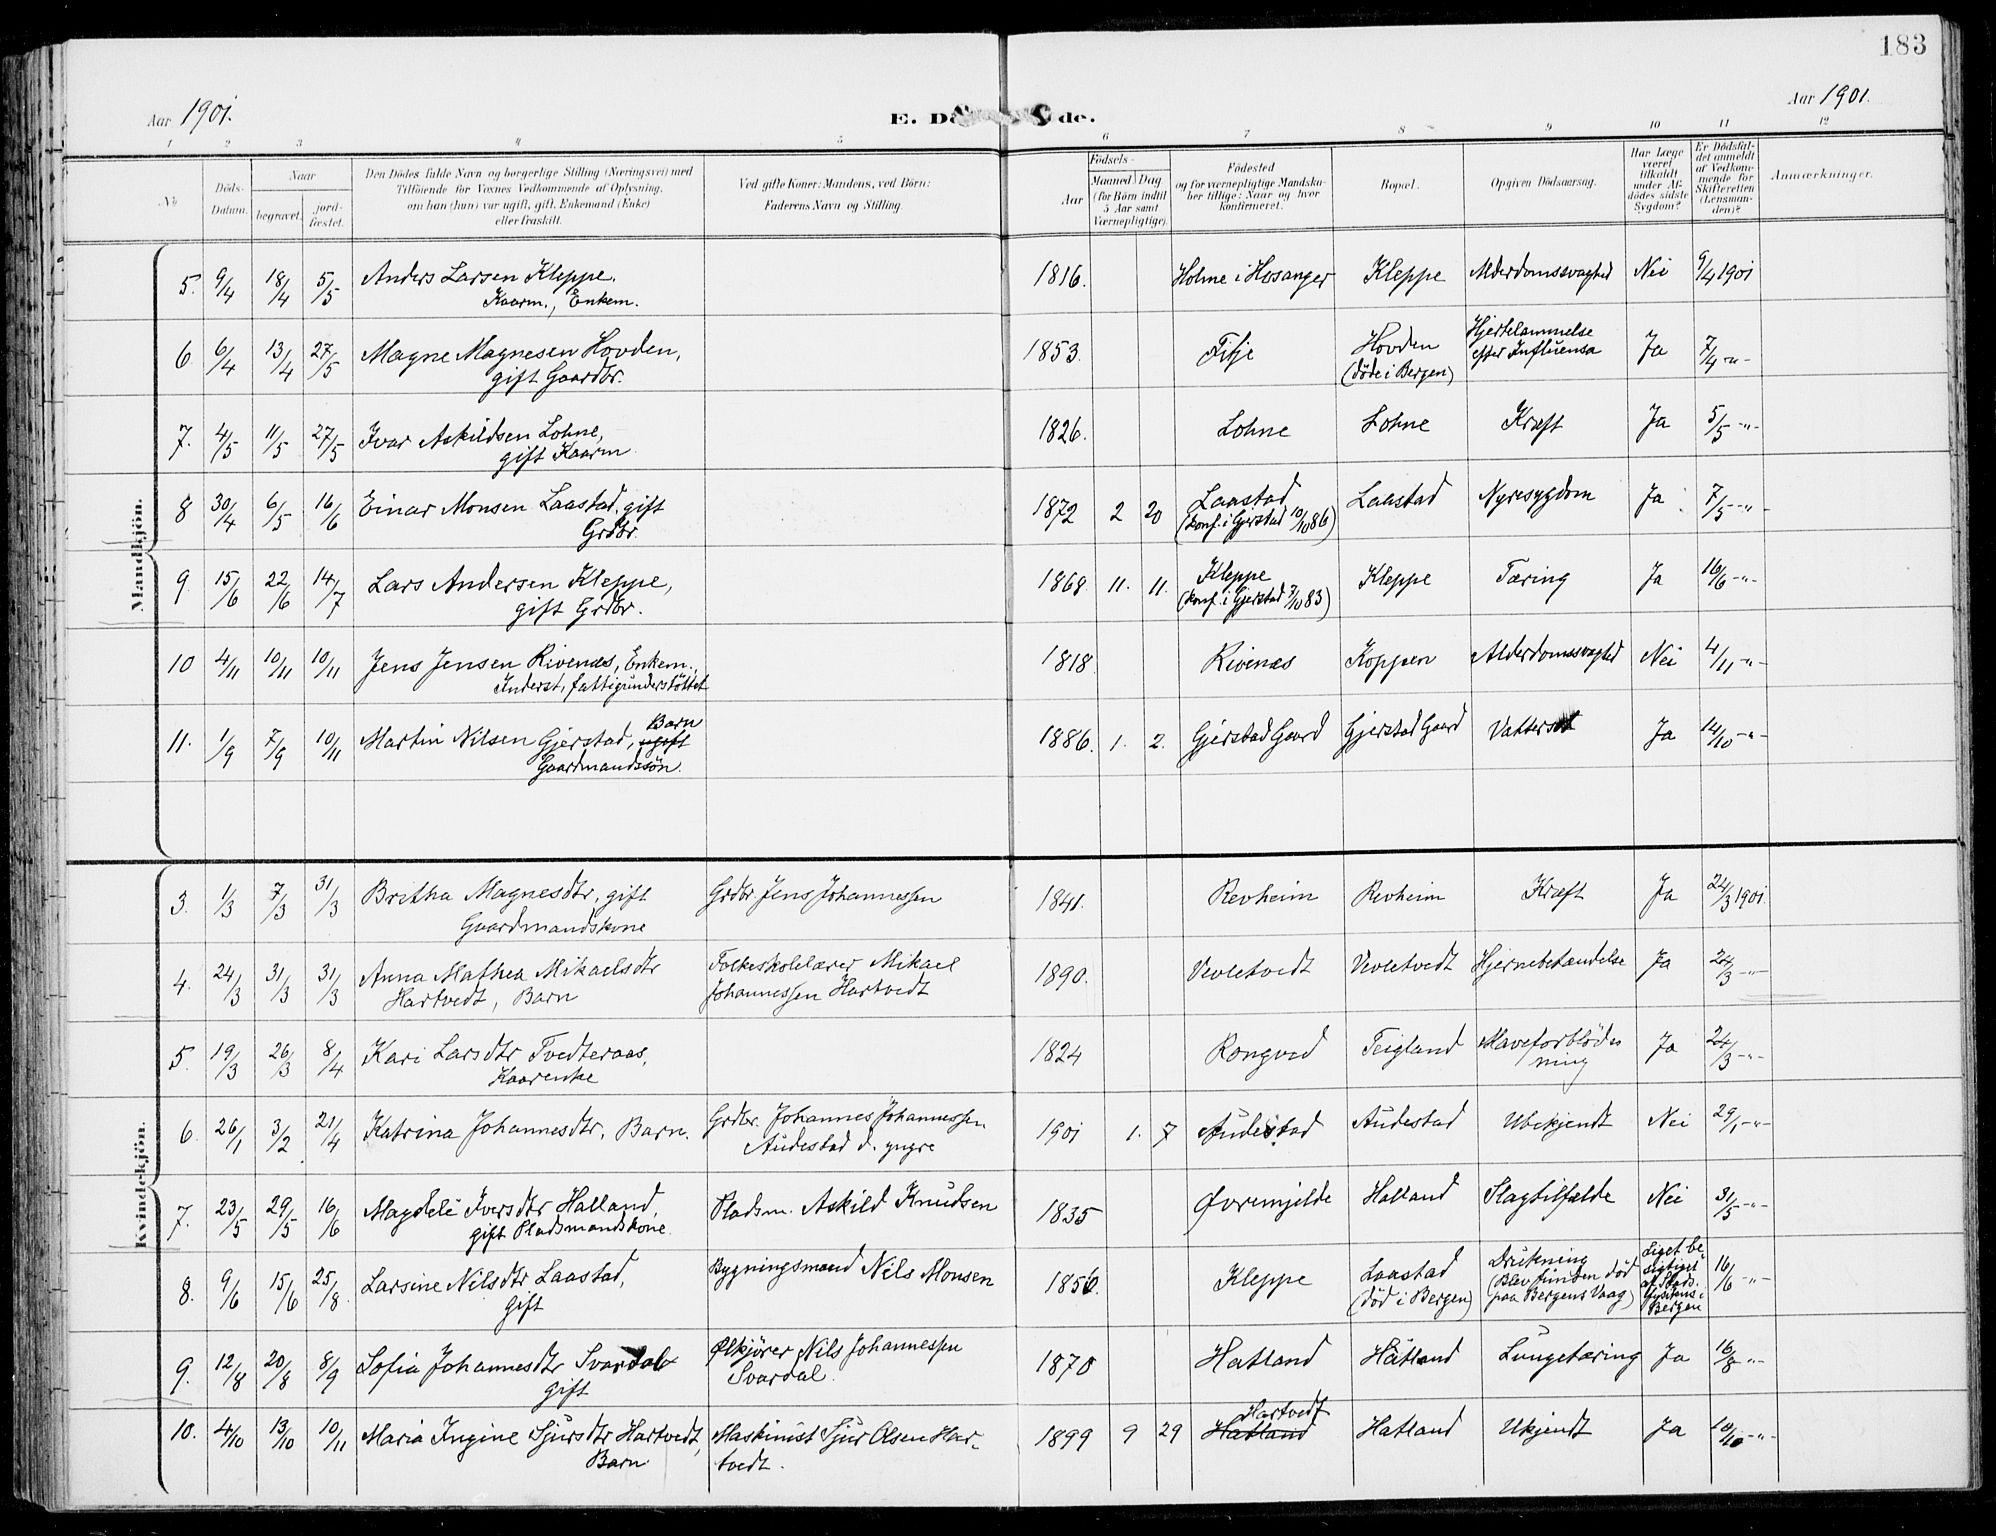 183
Aar 1901.
E. Dø de.
Aar 1901.
1 2 3 4 5 6 7 8 9 10 11 12
No
Døds-Datum.
Naar
begravet.
jord-fæstet.
Den Dødes fulde Navn og borgerlige Stilling (Næringsvei) med
Tilføiende for Voxnes Vedkommende af Oplysning,
om han (hun) var ugift, gift, Enkemand (Enke)
eller fraskilt.
Ved gifte Koner: Mandens, ved Børn:
Faderens Navn og Stilling.
Fødsels-
Aar
Maaned Dag
(for Børn indtil
5 Aar samt
Værnepligtige).
Fødested
og for værnepligtige Mandska-
ber tillige: Naar og hvor
konfirmeret.
Bopæl.
Opgiven Dødsaarsag.
Har Læge
været
tilkaldt
under Af-
dødes sidste
Sygdom?
Er Dødsfal-
det anmeldt
af Vedkom-
mende for
Skifteretten
(Lensman-
den)?
Anmærkninger.
Mandkjön.
5. 9/4 18/4 5/5 Anders Larsen Kleppe. 1816. Holme i Hosanger Kleppe Alderdomssvaghed Nei 9/4 1901
Kaarm., Enkem.
6. 6/4 13/4 27/5 Magne Magnesen Hovden, 1853. Fitje Hovden Hjertelammelse Ja 7/4 -"-
gift Gaardbr. (døde i Bergen) efter Influensa
7. 4/5 11/5 27/5 Ivar Askildsen Lohne, 1826. Lohne Lohne Kræft Ja 5/5 -"-
gift Kaarm.
8 30/4 6/5 16/6 Einar Monsen Laastad, gift 1872 2 20 Laastad Laastad Nyresygdom Ja 7/5 -"-
Grdbr. (konf. i Gjerstad 10/10 86)
9. 15/6 22/6 14/7 Lars Andersen Kleppe, 1868 11. 11. Kleppe Kleppe Tæring Ja 16/6 -"-
gift Grdbr. (konf. i Gjerstad 7/10 83)
10 4/11 10/11 10/11 Jens Jensen Rivenæs, Enkem., 1818 Rivenæs Koppen Alderdomssvaghed Nei 4/11 -"-
Inderst, fattigunderstöttet
11. 1/9 7/9 10/11 Martin Nilsen Gjerstad, ugift Barn 1886. 1. 2. Gjerstad Gaard Gjerstad Gaard Vattersot Ja 14/10 -"-
Gaardmandssön.
Kvindekjön.
3. 1/3 7/3 31/3 Britha Magnesdtr, gift Grdbr. Jens Johannessen 1841. Revheim Revheim Kræft Ja 24/3 1901.
Gaardmandskone
4. 24/3 31/3 31/3 Anna Mathea Mikaelsdtr Folkeskolelærer Mikael 1890. Vevletvedt Vevletvedt Hjernebetændelse Ja 24/3 -"-
Hartvedt, Barn Johannessen Hartvedt
5. 19/3 26/3 8/4 Kari Larsdtr Tvedteraas, 1824 Rongved Teigland Maveforblöd- Ja 24/3 -"-
Kaarenke ning
6. 26/1 3/2 21/4 Katrina Johannesdtr, Barn. Grdbr. Johannes Johannessen 1901 1. 7 Audestad Audestad Ubekjendt Nei 29/1 -"-
Audestad d. yngre
7. 23/5 29/5 16/6 Magdeli Iversdtr Halland, Pladsm. Askild Knudsen 1835 Øvremjelde Halland Slagtilfælde Nei 31/5 -"-
gift Pladsmandskone.
8. 9/6 15/6 25/8 Larsine Nilsdtr Laastad, Bygningsmand Nils Monsen 1856. Kleppe Laastad Drukning Liget be- 16/6 -"-
gift (död i Bergen) (Blev funden död sigtiget
paa Bergens Vaag) af Stads-
fysikus i
Bergen
9. 12/8 20/8 8/9 Sofia Johannesdtr Svardal Ølkjører Nils Johannessen 1870 Hatland Hatland Lungetæring Ja 16/8 -"-
gift Svardal.
10. 4/10 13/10 10/11 Maria Ingine Sjursdtr Hartvedt, Maskinist Sjur Olsen Har- 1899 9 29 Hatland Hartvedt Hatland Ukjendt Ja 10/10 -"-
Barn tvedt.